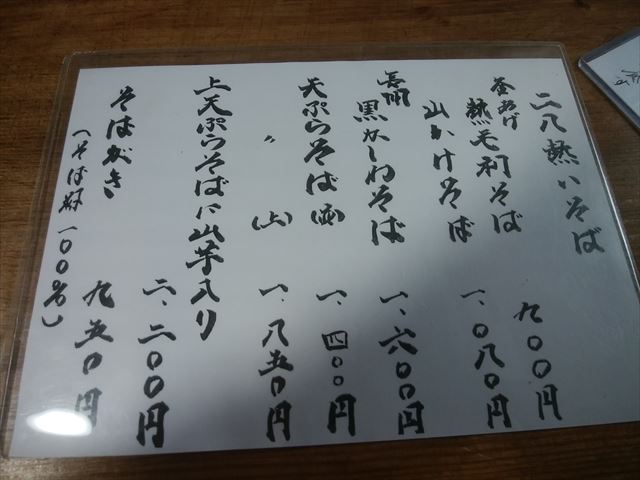 二八 熱いそば
釜あげ
熱毛利そば 九〇〇円
山かけそば 一、〇八〇円
長州
黒かしわそば 一、六〇〇円
天ぷらそば(並) 一、四〇〇円
〃 (上) 一、八五〇円
上天ぷらそばに山芋入り
二、二〇〇円
そばがき 九五〇円
(そば粉一〇〇%)